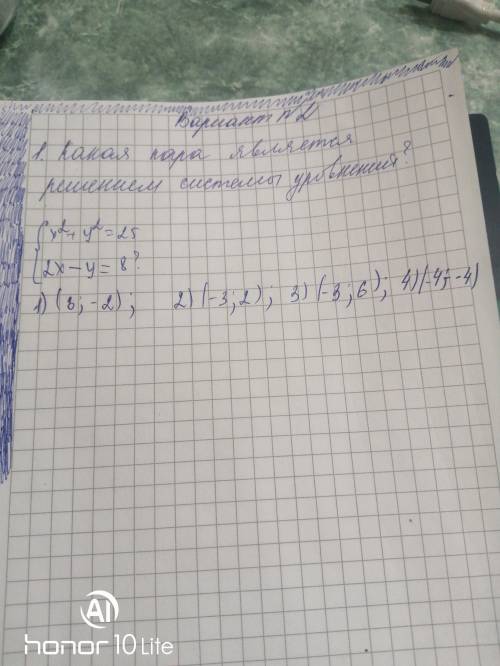 Вариант №2
1. Какая пара является
решением системы уровнений?
{x²+y²=25
{2x-y=8?
1) (3; -2); 2) (-3; 2); 3) (-3; 6); 4) (-4; -4)
AI
honor 10 Lite